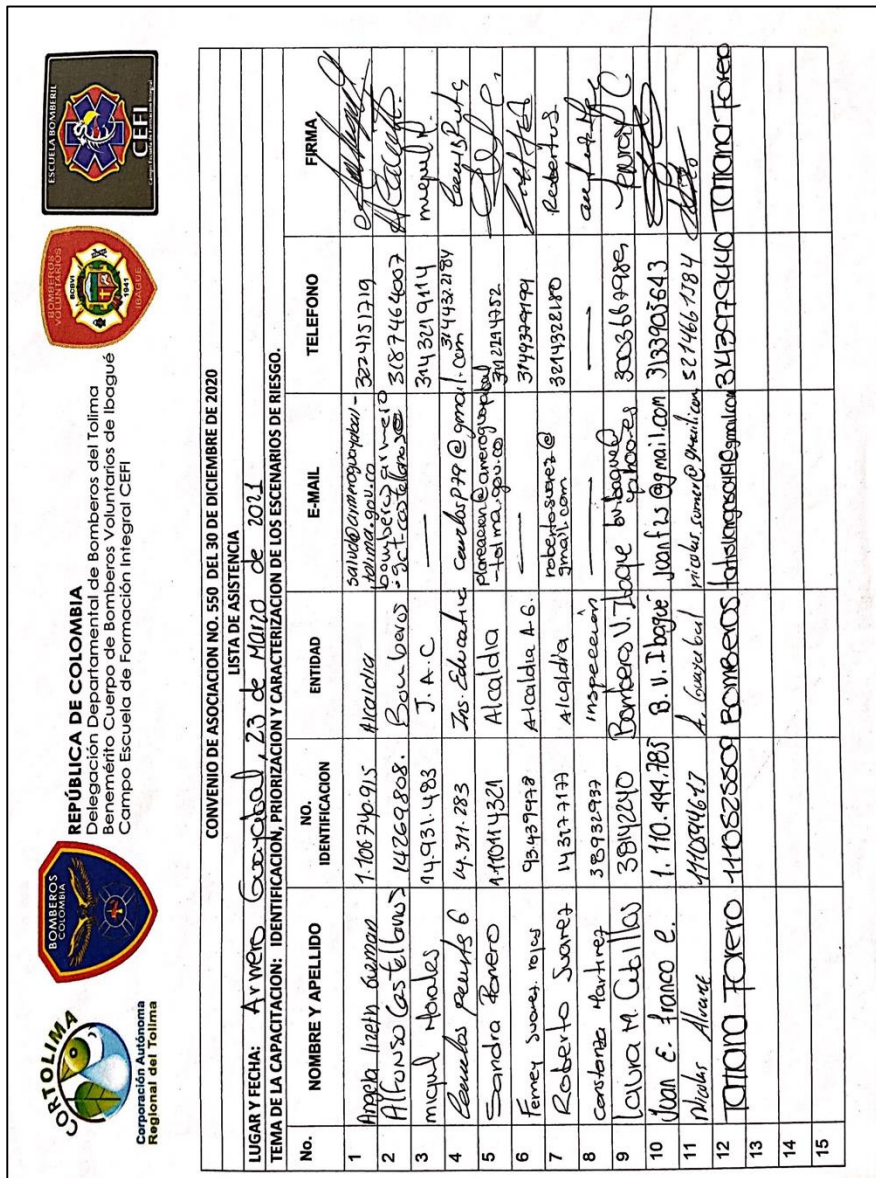 CORTOLIMA
Corporación Autónoma
Regional del Tolima
BOMBEROS
COLOMBIA
REPÚBLICA DE COLOMBIA
Delegación Departamental de Bomberos del Tolima
Benemérito Cuerpo de Bomberos Voluntarios de Ibagué
Campo Escuela de Formación Integral CEFI
BOMBEROS
VOLUNTARIOS
BCBVI
1941
IBAGUE
ESCUELA BOMBERIL
CEFI
Campo Escuela de Formación Integral
CONVENIO DE ASOCIACION NO. 550 DEL 30 DE DICIEMBRE DE 2020
LISTA DE ASISTENCIA
LUGAR Y FECHA: Armero Guayabal, 23 de Marzo de 2021
TEMA DE LA CAPACITACION: IDENTIFICACION, PRIORIZACION Y CARACTERIZACION DE LOS ESCENARIOS DE RIESGO.
No. NOMBRE Y APELLIDO NO. IDENTIFICACION ENTIDAD E-MAIL TELEFONO FIRMA
1 Angela lizeth Guzman 1.106740.915 Alcaldia tolima.gov.co 3224151719
2 Alfonso Castellanos 14269808. Bomberos 3187464007
3 miguel Morales 14.931.483 J.A.C — 3143219114 miguel M.
4 14.311.283 Ins. Educativa carlosp79@gmail.com 3144322184
5 Sandra Romero 1.110114321 Alcaldia planeacion@armeroguayabal -tolima.gov.co 3112214752
6 Ferney Suarez rojas 93439978 Alcaldia A-G. — 3149379199
7 Roberto Suarez 143177177 Alcaldia robertosuarez@ gmail.com 3214322180 Roberto S.
8 Constanza Martinez 38932937 Inspección — —
9 Laura M. Cubillos 38142240 Bomberos V. Ibague bvibague@ yahoo.es
10 Juan E. Franco C. 1.110.444.785 B.V. Ibagué 3133905643
11 Nicolas Alvare A. Guayabal 5214661584
12 Tatiana Torero 1106525509 BOMBEROS 3143979440 Tatiana Torero
13
14
15